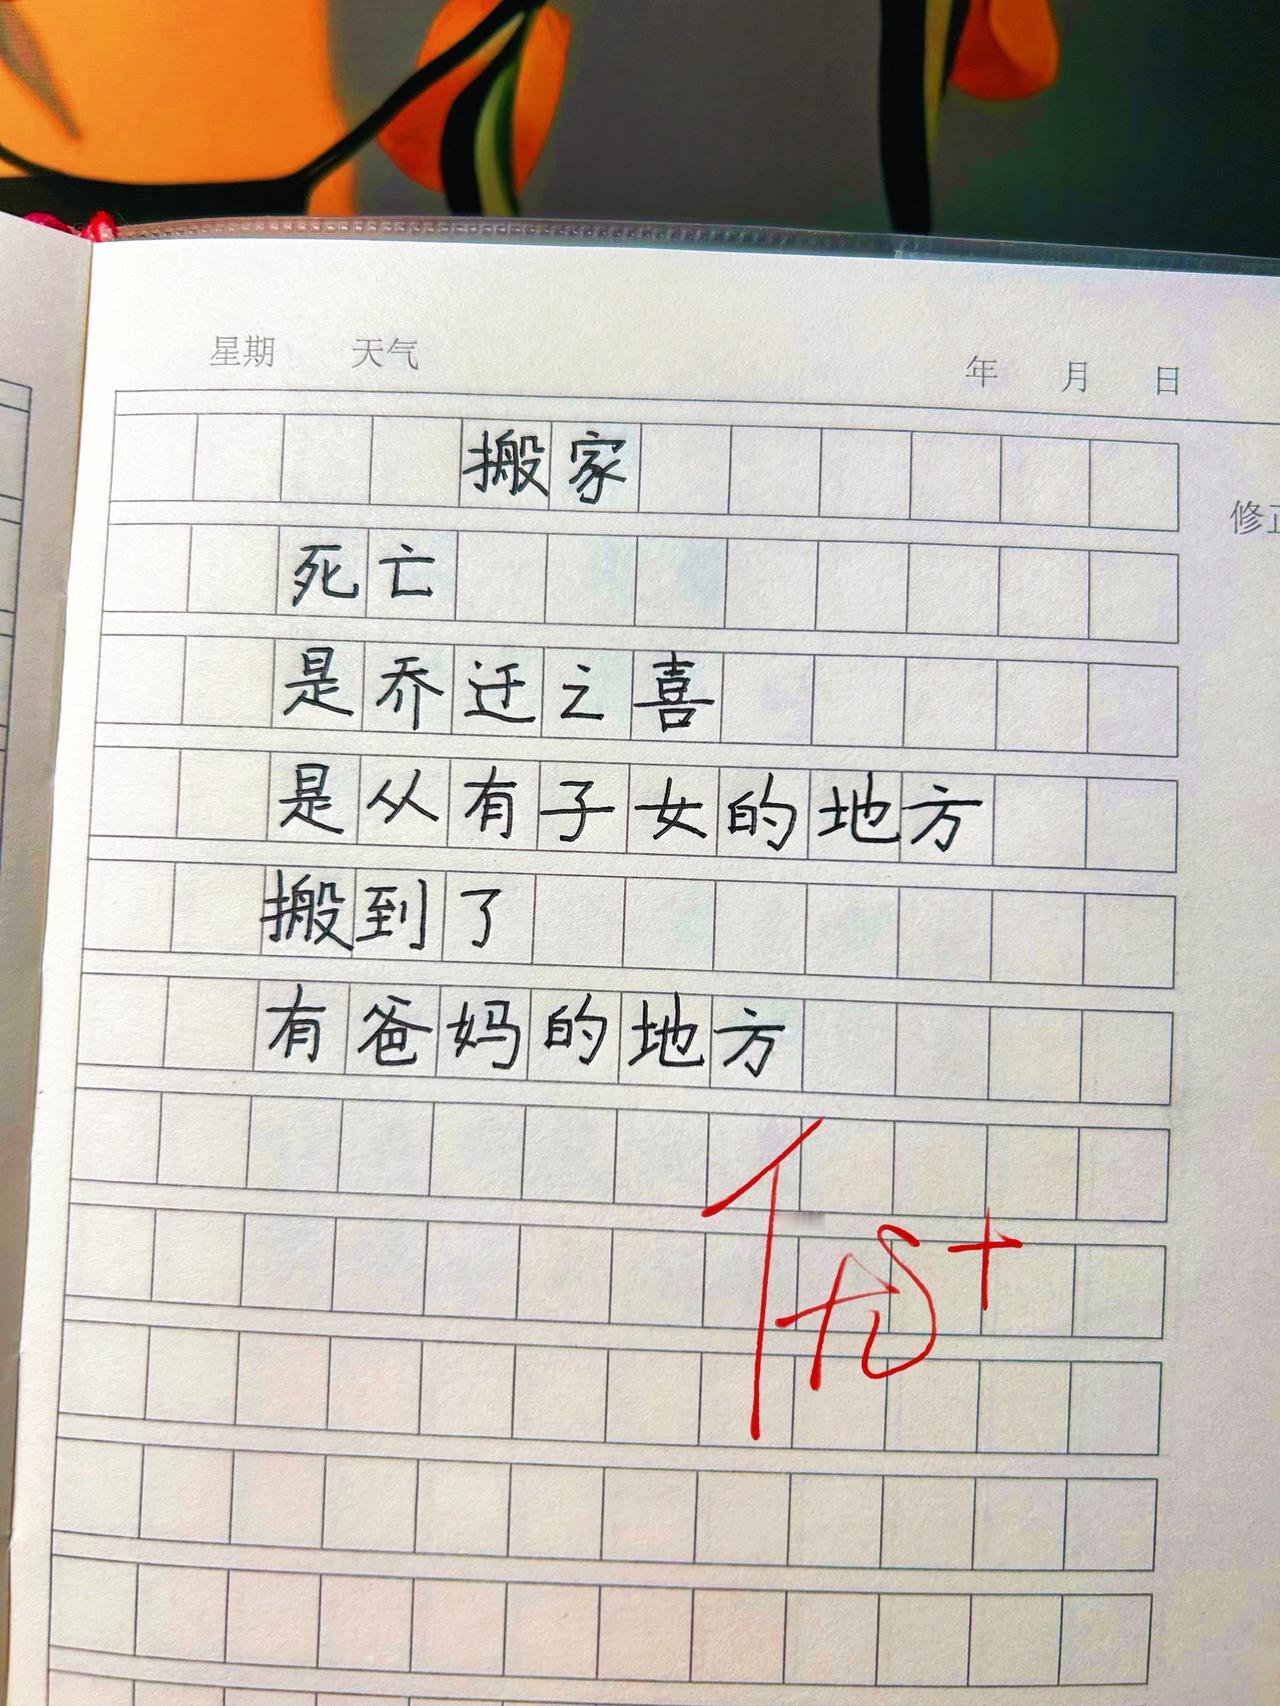 星期 天气 年 月 日
搬家
修正
死亡
是乔迁之喜
是从有子女的地方
搬到了
有爸妈的地方
优+